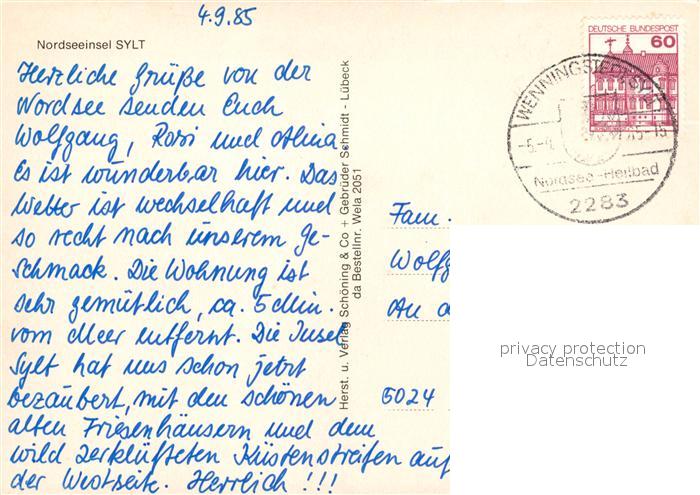 4.9.85
Nordseeinsel SYLT
Herzliche Grüße von der
Nordsee senden Euch
Wolfgang, Rosi und
Es ist wunderbar hier. Das
Wetter ist wechselhaft und
so recht nach unserem Ge-
schmack. Die Wohnung ist
sehr gemütlich, ca. 5 Min.
vom Meer entfernt. Die Insel
Sylt hat uns schon jetzt
bezaubert, mit den schönen
alten Friesenhäusern und dem
wild zerklüfteten Küstenstreifen auf
der Westseite. Herrlich !!!
Herst. u. Verlag Schöning & Co + Gebrüder Schmidt - Lübeck
da Bestellnr. Wela 2051
DEUTSCHE BUNDESPOST
60
WENNINGSTEDT/SYLT
Nordsee-Heilbad
2283
Fam.
Wolfg
An d
5024
privacy protection
Datenschutz